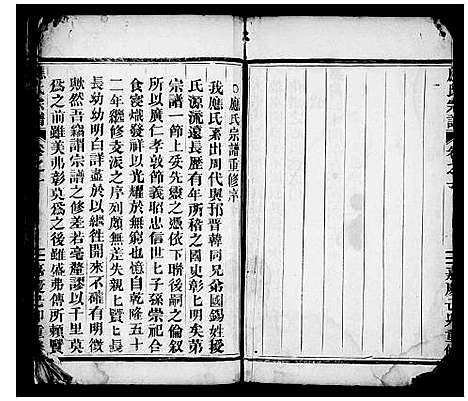 應氏宗譜重修序
我應氏系出周代與邘晉韓同兄弟國錫姓授
氏源流遠長歷有年所稽之國史彰彰明矣第
宗譜一節上妥先靈之憑依下聯後嗣之倫敘
所以廣仁孝敦節義昭忠信世世子孫崇祀合
食寖熾發祥以光耀於無窮也憶自乾隆五十
二年纘修支派之序列頗無差失親親上賢賢長
長幼幼明白詳盡於以繼往開來不確有明徵
歟然吾竊謂宗譜之修差若毫釐謬以千里莫
為之前雖美弗彰莫為之後雖盛弗傳所賴賢
應氏宗譜
卷之